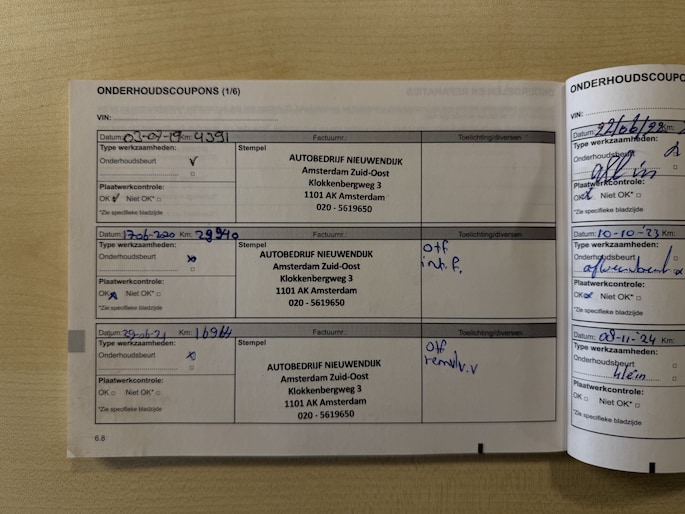 ONDERHOUDSCOUPONS (1/6)
VIN:
Datum: 03-07-19 Km: 4391 Factuurnr.: Toelichting/diversen
Type werkzaamheden: Stempel
Onderhoudsbeurt ✓
Plaatwerkcontrole:
OK ✓ Niet OK* □
*Zie specifieke bladzijde
AUTOBEDRIJF NIEUWENDIJK
Amsterdam Zuid-Oost
Klokkenbergweg 3
1101 AK Amsterdam
020 - 5619650
Datum: 17-06-2020 Km: 29940 Factuurnr.: Toelichting/diversen
Type werkzaamheden: Stempel
Onderhoudsbeurt x
Plaatwerkcontrole:
OK x Niet OK* □
*Zie specifieke bladzijde
AUTOBEDRIJF NIEUWENDIJK
Amsterdam Zuid-Oost
Klokkenbergweg 3
1101 AK Amsterdam
020 - 5619650
Off
int.f.
Datum: Km: 16964 Factuurnr.: Toelichting/diversen
Type werkzaamheden: Stempel
Onderhoudsbeurt x
Plaatwerkcontrole:
OK □ Niet OK* □
*Zie specifieke bladzijde
AUTOBEDRIJF NIEUWENDIJK
Amsterdam Zuid-Oost
Klokkenbergweg 3
1101 AK Amsterdam
020 - 5619650
Off
remvl.v
6.8
ONDERHOUDSCOUPO
VIN:
Datum: 22/06/22 Km:
Type werkzaamheden:
Onderhoudsbeurt
all in
Plaatwerkcontrole:
OK x Niet OK* □
*Zie specifieke bladzijde
Datum: 10-10-'23 Km:
Type werkzaamheden:
Onderhoudsbeurt
Plaatwerkcontrole:
OK x Niet OK* □
*Zie specifieke bladzijde
Datum: 08-11-'24 Km:
Type werkzaamheden:
Onderhoudsbeurt □
klein □
Plaatwerkcontrole:
OK □ Niet OK* □
*Zie specifieke bladzijde